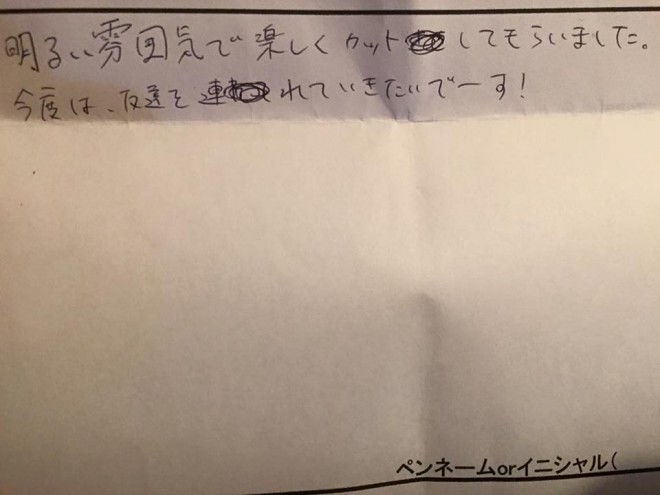 明るい雰囲気で楽しくカットしてもらいました。
今度は、友達を連れていきたいでーす！
ペンネームorイニシャル(